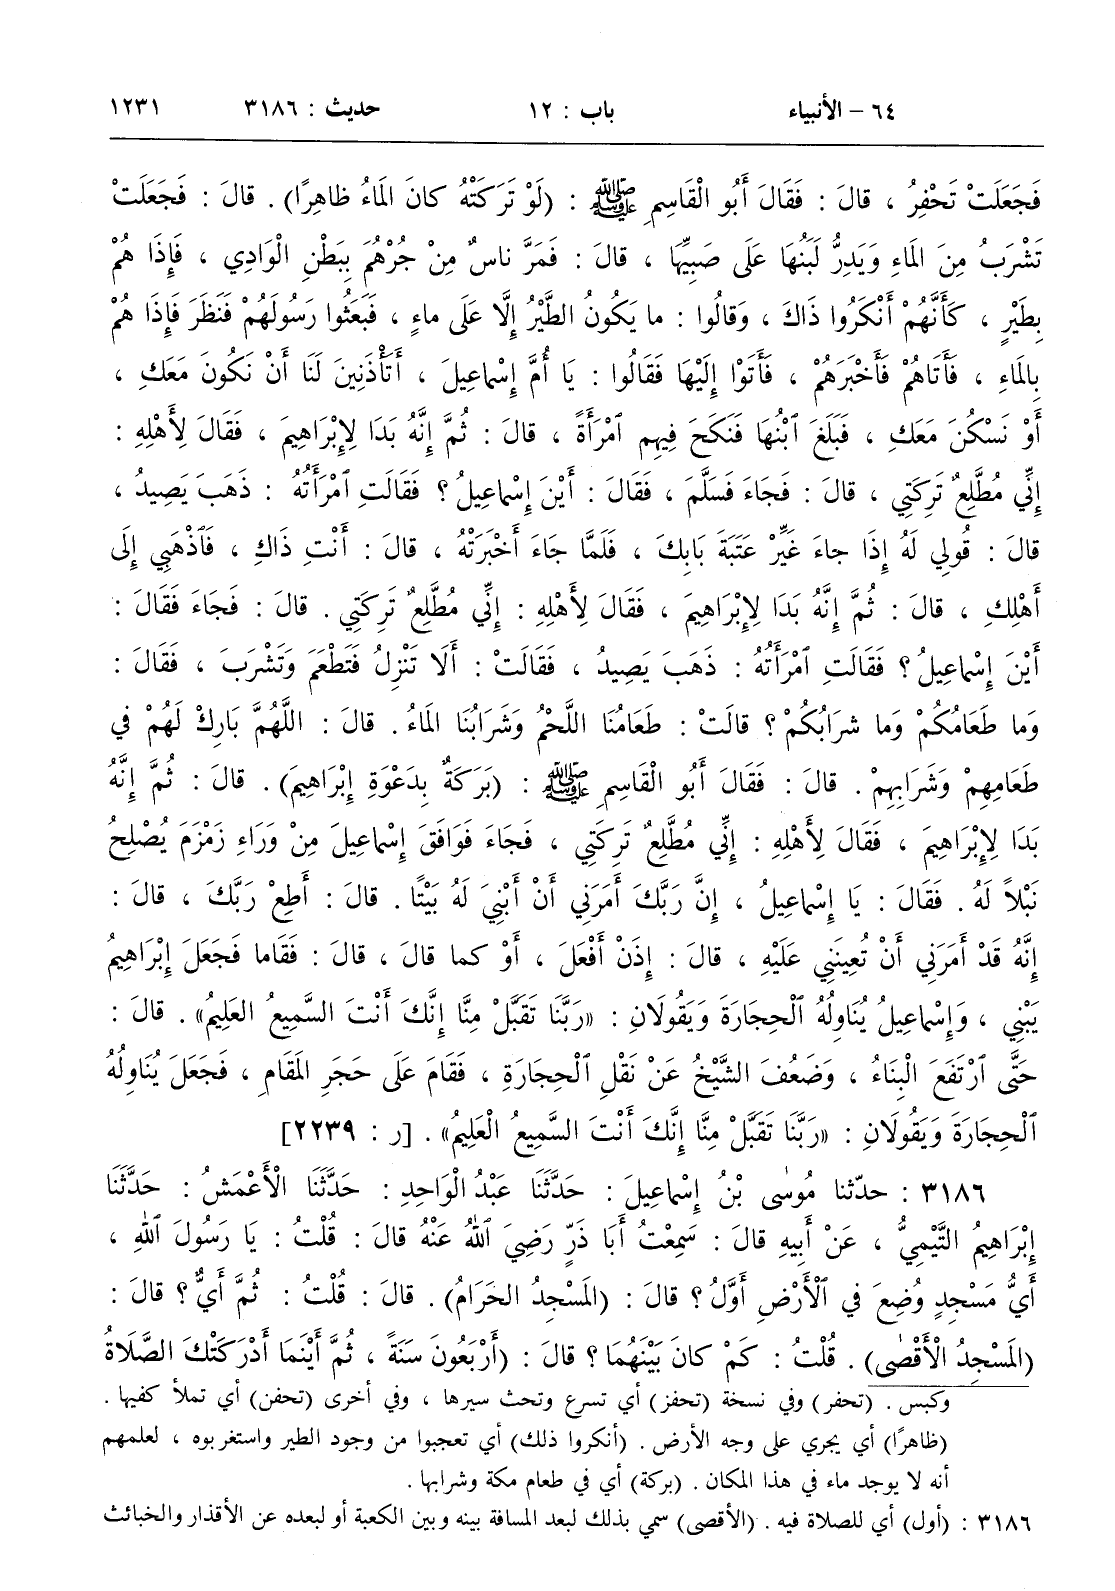 ٦٤ – الأنبياء باب : ١٢ حديث : ٣١٨٦ ١٢٣١
فَجَعَلَتْ تَحْفِرُ ، قالَ : فَقَالَ أَبُو الْقَاسِمِ ﷺ : (لَوْ تَرَكَتْهُ كانَ المَاءُ ظاهِرًا) . قالَ : فَجَعَلَتْ
تَشْرَبُ مِنَ المَاءِ وَيَدِرُّ لَبَنُهَا عَلَى صَبِيِّهَا ، قالَ : فَمَرَّ ناسٌ مِنْ جُرْهُمَ بِبَطْنِ الْوَادِي ، فَإِذَا هُمْ
بِطَيْرٍ ، كَأَنَّهُمْ أَنْكَرُوا ذَاكَ ، وَقالُوا : ما يَكُونُ الطَّيْرُ إِلَّا عَلَى ماءٍ ، فَبَعَثُوا رَسُولَهُمْ فَنَظَرَ فَإِذَا هُمْ
بِالمَاءِ ، فَأَتَاهُمْ فَأَخْبَرَهُمْ ، فَأَتَوْا إِلَيْهَا فَقَالُوا : يَا أُمَّ إِسْماعِيلَ ، أَتَأْذَنِينَ لَنَا أَنْ نَكُونَ مَعَكِ ،
أَوْ نَسْكُنَ مَعَكِ ، فَبَلَغَ ٱبْنُهَا فَنَكَحَ فِيهِمِ ٱمْرَأَةً ، قالَ : ثُمَّ إِنَّهُ بَدَا لِإِبْرَاهِيمَ ، فَقَالَ لِأَهْلِهِ :
إِنِّي مُطَّلِعٌ تَرِكَتِي ، قالَ : فَجَاءَ فَسَلَّمَ ، فَقَالَ : أَيْنَ إِسْماعِيلُ ؟ فَقَالَتِ ٱمْرَأَتُهُ : ذَهَبَ يَصِيدُ ،
قالَ : قُولِي لَهُ إِذَا جاءَ غَيِّرْ عَتَبَةَ بَابِكَ ، فَلَمَّا جَاءَ أَخْبَرَتْهُ ، قالَ : أَنْتِ ذَاكِ ، فَٱذْهَبِي إِلَى
أَهْلِكِ ، قالَ : ثُمَّ إِنَّهُ بَدَا لِإِبْرَاهِيمَ ، فَقَالَ لِأَهْلِهِ : إِنِّي مُطَّلِعٌ تَرِكَتِي . قالَ : فَجَاءَ فَقَالَ :
أَيْنَ إِسْماعِيلُ ؟ فَقَالَتِ ٱمْرَأَتُهُ : ذَهَبَ يَصِيدُ ، فَقَالَتْ : أَلَا تَنْزِلُ فَتَطْعَمَ وَتَشْرَبَ ، فَقَالَ :
وَما طَعَامُكُمْ وَما شَرَابُكُمْ ؟ قالَتْ : طَعَامُنَا اللَّحْمُ وَشَرَابُنَا المَاءُ . قالَ : اللَّهُمَّ بَارِكْ لَهُمْ فِي
طَعَامِهِمْ وَشَرَابِهِمْ . قالَ : فَقَالَ أَبُو الْقَاسِمِ ﷺ : (بَرَكَةٌ بِدَعْوَةِ إِبْرَاهِيمَ) . قالَ : ثُمَّ إِنَّهُ
بَدَا لِإِبْرَاهِيمَ ، فَقَالَ لِأَهْلِهِ : إِنِّي مُطَّلِعٌ تَرِكَتِي ، فَجَاءَ فَوَافَقَ إِسْماعِيلَ مِنْ وَرَاءِ زَمْزَمَ يُصْلِحُ
نَبْلاً لَهُ . فَقَالَ : يَا إِسْماعِيلُ ، إِنَّ رَبَّكَ أَمَرَنِي أَنْ أَبْنِيَ لَهُ بَيْتًا . قالَ : أَطِعْ رَبَّكَ ، قالَ :
إِنَّهُ قَدْ أَمَرَنِي أَنْ تُعِينَنِي عَلَيْهِ ، قالَ : إِذَنْ أَفْعَلَ ، أَوْ كما قالَ ، قالَ : فَقَاما فَجَعَلَ إِبْرَاهِيمُ
يَبْنِي ، وَإِسْماعِيلُ يُنَاوِلُهُ ٱلْحِجَارَةَ وَيَقُولَانِ : «رَبَّنَا تَقَبَّلْ مِنَّا إِنَّكَ أَنْتَ السَّمِيعُ العَلِيمُ» . قالَ :
حَتَّى ٱرْتَفَعَ الْبِنَاءُ ، وَضَعُفَ الشَّيْخُ عَنْ نَقْلِ ٱلْحِجَارَةِ ، فَقَامَ عَلَى حَجَرِ المَقَامِ ، فَجَعَلَ يُنَاوِلُهُ
ٱلْحِجَارَةَ وَيَقُولَانِ : «رَبَّنَا تَقَبَّلْ مِنَّا إِنَّكَ أَنْتَ السَّمِيعُ الْعَلِيمُ» . [ر : ٢٢٣٩]
٣١٨٦ : حدّثنا مُوسٰى بْنُ إِسْماعِيلَ : حَدَّثَنَا عَبْدُ الْوَاحِدِ : حَدَّثَنَا الْأَعْمَشُ : حَدَّثَنَا
إِبْرَاهِيمُ التَّيْمِيُّ ، عَنْ أَبِيهِ قالَ : سَمِعْتُ أَبَا ذَرٍّ رَضِيَ ٱللهُ عَنْهُ قالَ : قُلْتُ : يَا رَسُولَ ٱللهِ ،
أَيُّ مَسْجِدٍ وُضِعَ فِي ٱلْأَرْضِ أَوَّلُ ؟ قالَ : (المَسْجِدُ الحَرَامُ) . قالَ : قُلْتُ : ثُمَّ أَيٌّ ؟ قالَ :
(المَسْجِدُ الْأَقْصٰى) . قُلْتُ : كَمْ كانَ بَيْنَهُمَا ؟ قالَ : (أَرْبَعُونَ سَنَةً ، ثُمَّ أَيْنَمَا أَدْرَكَتْكَ الصَّلَاةُ
وكبس . (تحفر) وفي نسخة (تحفز) أي تسرع وتحث سيرها ، وفي أخرى (تحفن) أي تملأ كفيها .
(ظاهرًا) أي يجري على وجه الأرض . (أنكروا ذلك) أي تعجبوا من وجود الطير واستغربوه ، لعلمهم
أنه لا يوجد ماء في هذا المكان . (بركة) أي في طعام مكة وشرابها .
٣١٨٦ : (أول) أي للصلاة فيه . (الأقصى) سمي بذلك لبعد المسافة بينه وبين الكعبة أو لبعده عن الأقذار والخبائث